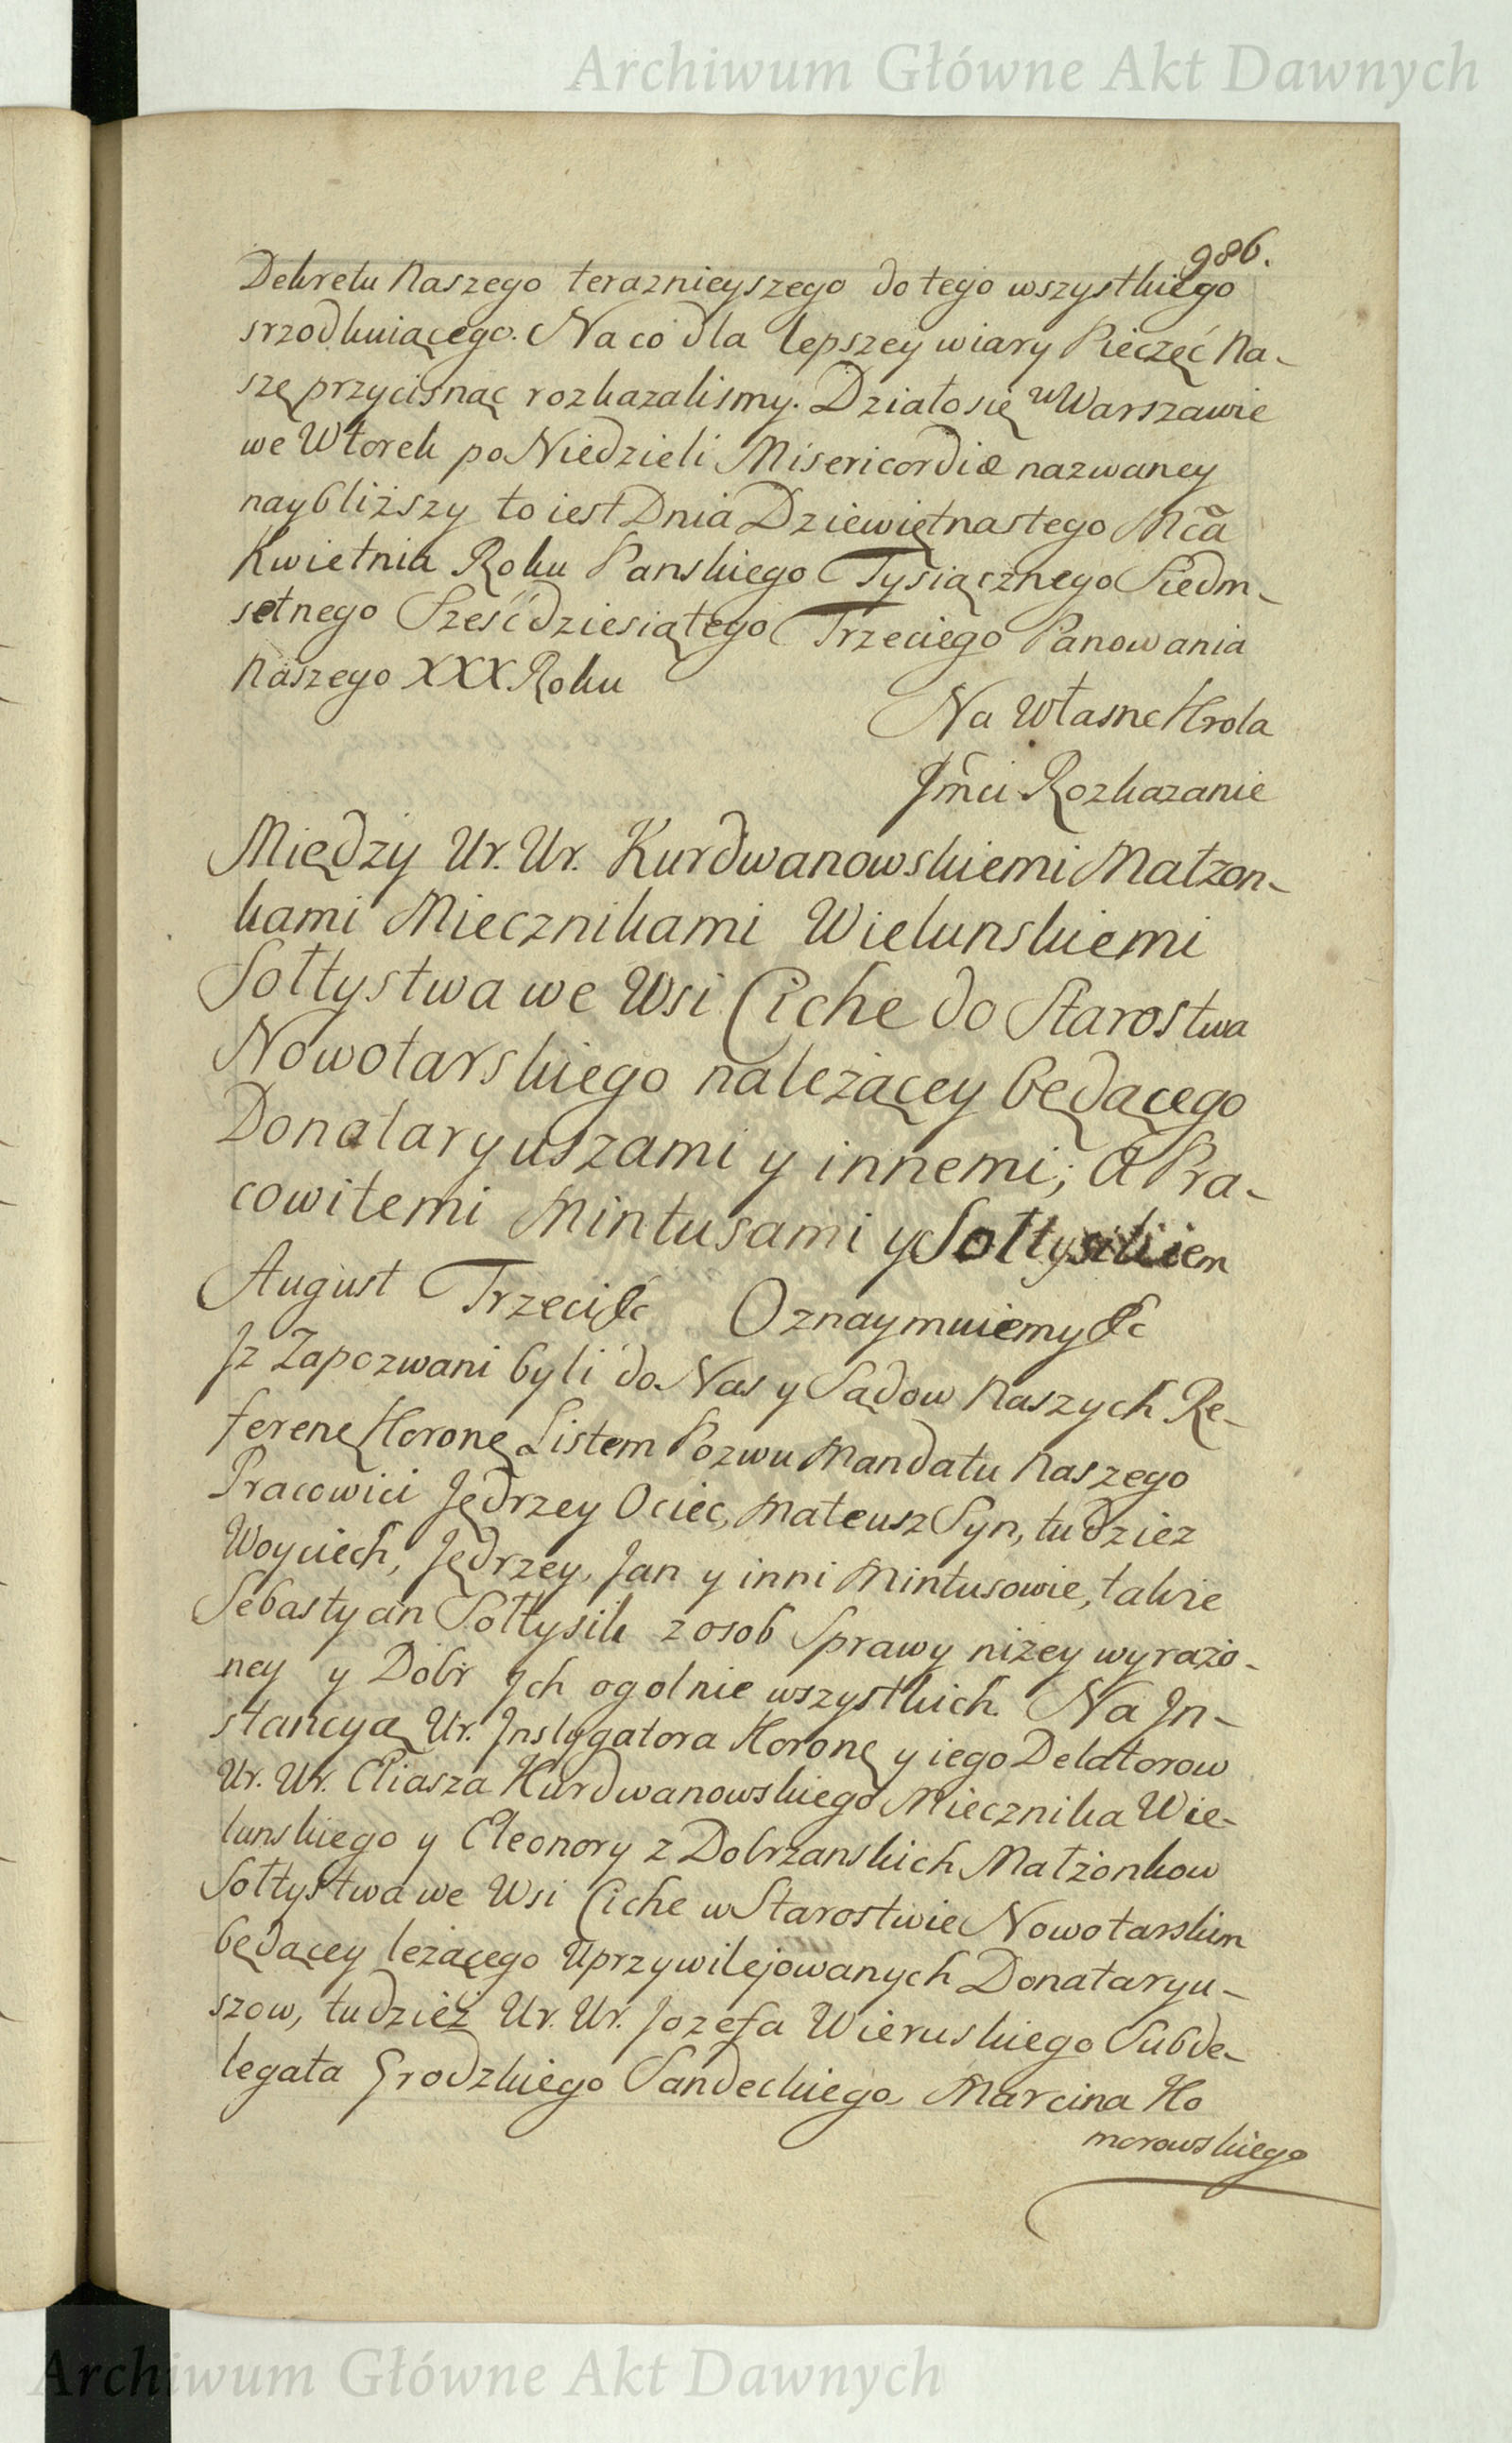 Archiwum Główne Akt Dawnych
986.
Dekretu Naszego teraznieyszego do tego wszystkiego
srzodkuiącego. Na co dla lepszey wiary Pieczęć Na-
szę przycisnąc rozkazalismy. Działo się w Warszawie
we Wtorek po Niedzieli Misericordiæ nazwaney
naybliższy to iest Dnia Dziewiętnastego Mca
Kwietnia Roku Panskiego Tysiącznego Siedm-
setnego Sześćdziesiątego Trzeciego Panowania
Naszego XXX Roku
Na Własne Krola
Jmci Rozkazanie
Między Ur. Ur. Kurdwanowskiemi Małzon-
kami Miecznikami Wielunskiemi
Sołtystwa we Wsi Ciche do Starostwa
Nowotarskiego należącey będącego
Donataryuszami y innemi; A Pra-
cowitemi Mintusami y Sołtysikiem
August Trzeci &c Oznaymuiemy &c
Jz Zapozwani byli do Nas y Sądow Naszych Re-
ferenę Koronę Listem Pozwu Mandatu Naszego
Pracowici Jędrzey Ociec, Mateusz Syn, tudziez
Woyciech, Jędrzey, Jan y inni Mintusowie, takze
Sebastyan Sołtysik z osob Sprawy niżey wyrażo-
ney y Dobr Jch ogolnie wszystkich. Na Jn-
stancyą Ur. Jnstygatora Koronę y iego Delatorow
Ur. Ur. Eliasza Kurdwanowskiego Miecznika Wie-
lunskiego y Eleonory z Dobrzanskich Małżonkow
Sołtystwa we Wsi Ciche w Starostwie Nowotarskim
będącey leżącego Uprzywilejowanych Donataryu-
szow, tudzież Ur. Ur. Jozefa Wieruskiego Subde-
legata Grodzkiego Sandeckiego, Marcina Ko
morowskiego
Archiwum Główne Akt Dawnych